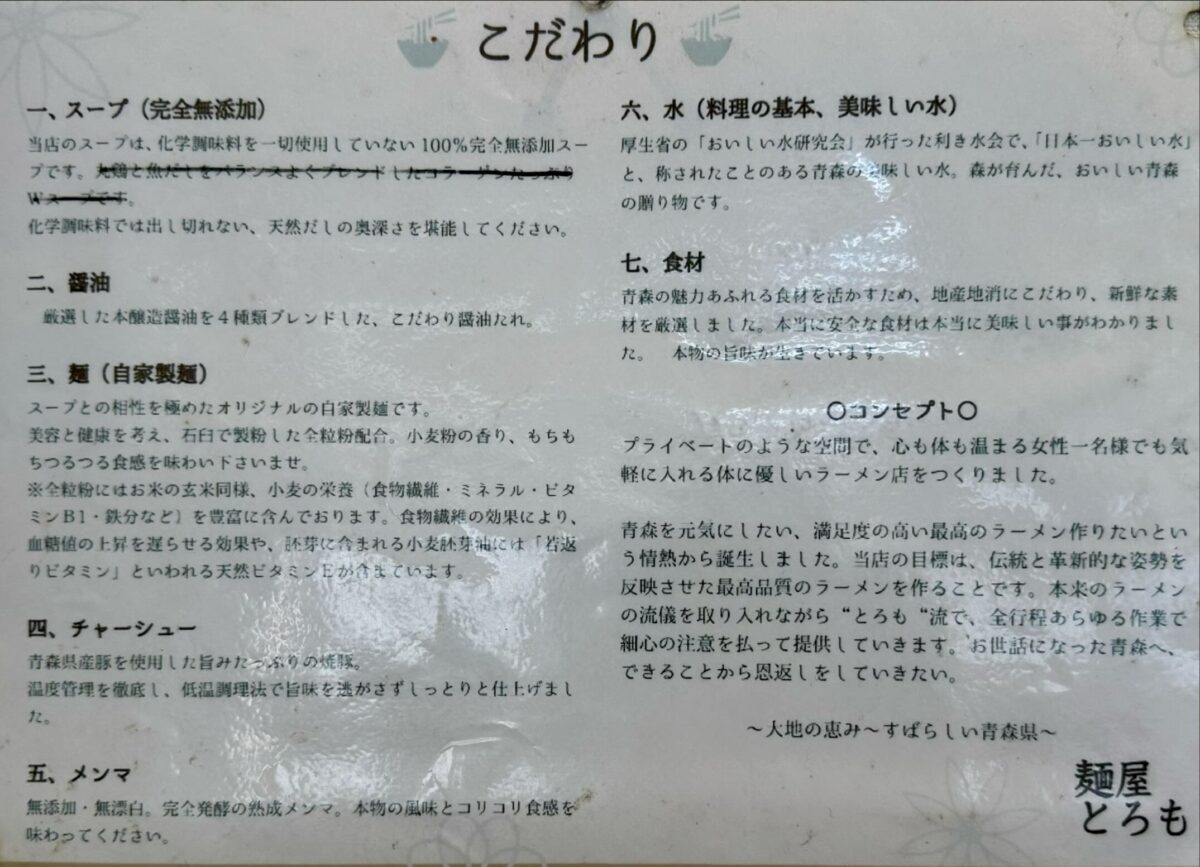 こだわり
一、スープ（完全無添加）
当店のスープは、化学調味料を一切使用していない100%完全無添加スー
プです。丸鶏と魚だしをバランスよくブレンドしたコラーゲンたっぷり
Wスープです。
化学調味料では出し切れない、天然だしの奥深さを堪能してください。
二、醤油
厳選した本醸造醤油を４種類ブレンドした、こだわり醤油たれ。
三、麺（自家製麺）
スープとの相性を極めたオリジナルの自家製麺です。
美容と健康を考え、石臼で製粉した全粒粉配合。小麦粉の香り、もちも
ちつるつる食感を味わい下さいませ。
※全粒粉にはお米の玄米同様、小麦の栄養（食物繊維・ミネラル・ビタ
ミンB1・鉄分など）を豊富に含んでおります。食物繊維の効果により、
血糖値の上昇を遅らせる効果や、胚芽に含まれる小麦胚芽油には「若返
りビタミン」といわれる天然ビタミンEが含まています。
四、チャーシュー
青森県産豚を使用した旨みたっぷりの焼豚。
温度管理を徹底し、低温調理法で旨味を逃がさずしっとりと仕上げまし
た。
五、メンマ
無添加・無漂白。完全発酵の熟成メンマ。本物の風味とコリコリ食感を
味わってください。
六、水（料理の基本、美味しい水）
厚生省の「おいしい水研究会」が行った利き水会で、「日本一おいしい水」
と、称されたことのある青森の美味しい水。森が育んだ、おいしい青森
の贈り物です。
七、食材
青森の魅力あふれる食材を活かすため、地産地消にこだわり、新鮮な素
材を厳選しました。本当に安全な食材は本当に美味しい事がわかりまし
た。　本物の旨味が生きています。
〇コンセプト〇
プライベートのような空間で、心も体も温まる女性一名様でも気
軽に入れる体に優しいラーメン店をつくりました。
青森を元気にしたい、満足度の高い最高のラーメン作りたいとい
う情熱から誕生しました。当店の目標は、伝統と革新的な姿勢を
反映させた最高品質のラーメンを作ることです。本来のラーメン
の流儀を取り入れながら“とろも“流で、全行程あらゆる作業で
細心の注意を払って提供していきます。お世話になった青森へ、
できることから恩返しをしていきたい。
～大地の恵み～すばらしい青森県～
麺屋
とろも